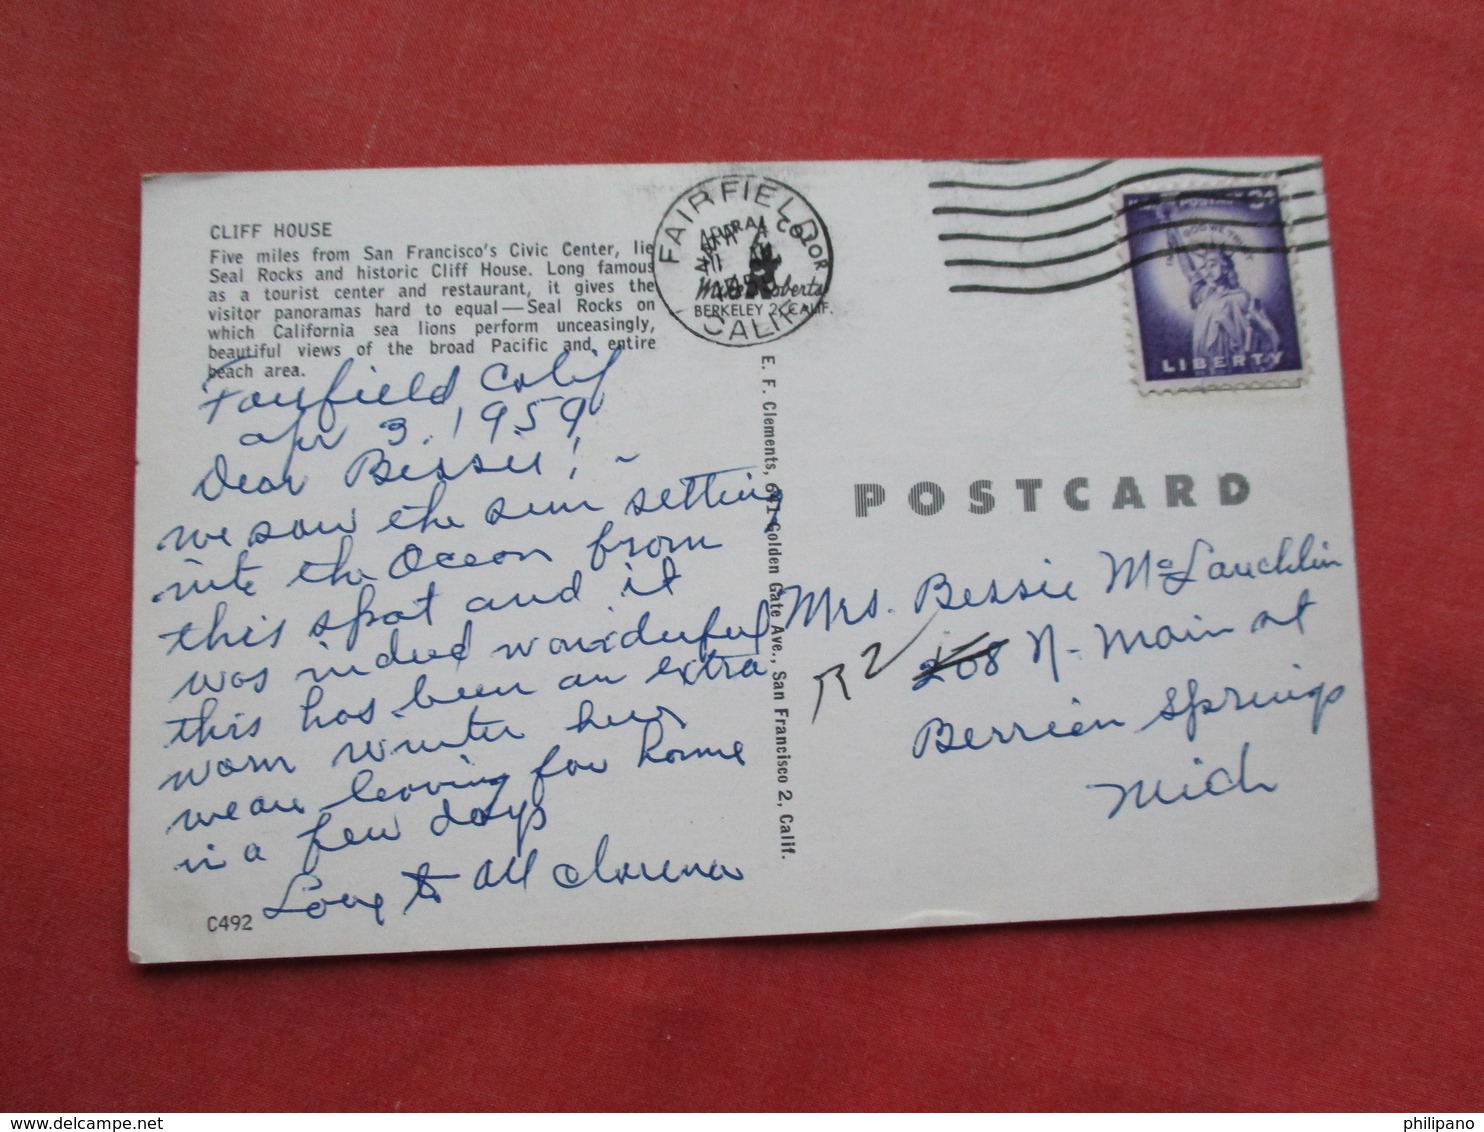 CLIFF HOUSE
Five miles from San Francisco's Civic Center, lie
Seal Rocks and historic Cliff House. Long famous
as a tourist center and restaurant, it gives the
visitor panoramas hard to equal—Seal Rocks on
which California sea lions perform unceasingly,
beautiful views of the broad Pacific and entire
beach area.
Fairfield Calif
Apr 3. 1959
Dear Bessie! ~
we saw the sun setting
into the Ocean from
this spot and it
was indeed wonderful
this has been an extra
warm winter here
we are leaving for home
in a few days
Love to All Clarena
C492
FAIRFIELD
CALIF.
APR
NATURAL COLOR
Mike Roberts
BERKELEY 2, CALIF.
E. F. Clements, 641 Golden Gate Ave., San Francisco 2, Calif.
U.S. POSTAGE 3¢
IN GOD WE TRUST
LIBERTY
POSTCARD
Mrs. Bessie McLauchlin
R2 208 N. Main st
Berrien Springs
Mich
delcampe.net
philipano